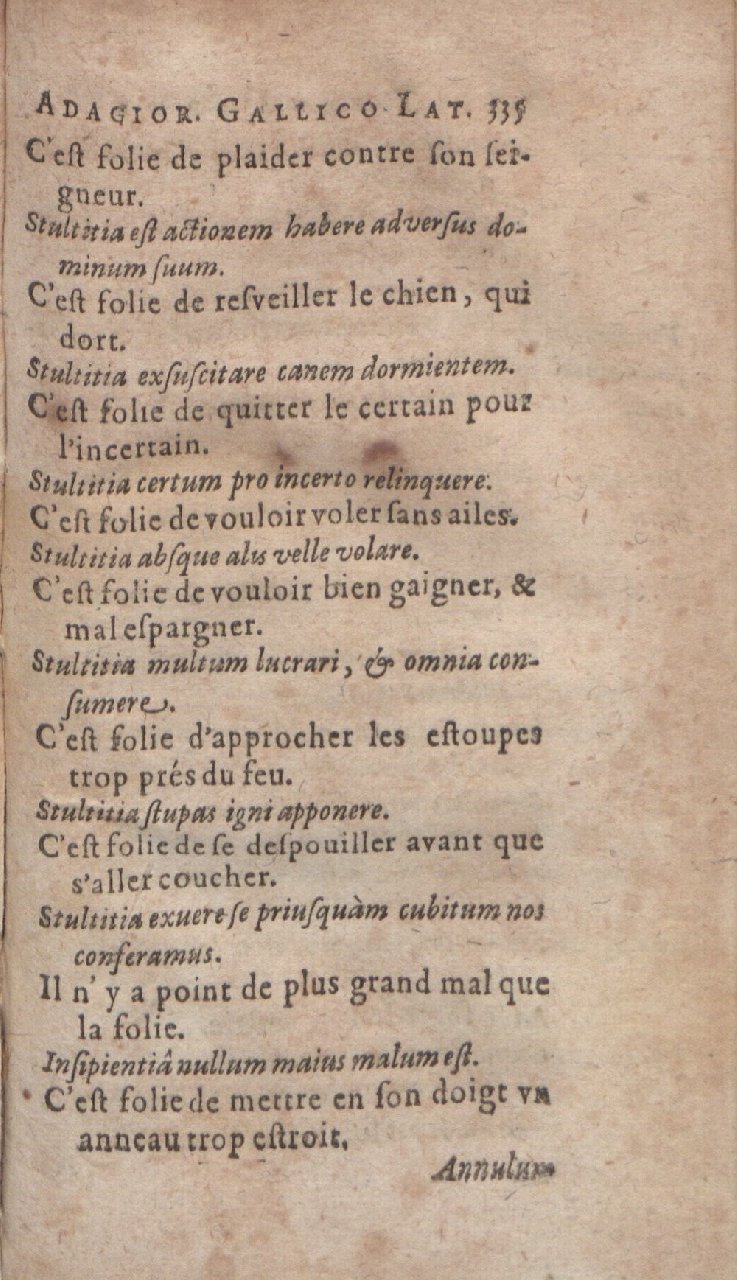 ADAGIOR. GALLICO LAT. 335
C'eſt folie de plaider contre ſon ſei-
gneur.
Stultitia eſt actionem habere adverſus do-
minum ſuum.
C'eſt folie de reſveiller le chien, qui
dort.
Stultitia exſuſcitare canem dormientem.
C'eſt folie de quitter le certain pour
l'incertain.
Stultitia certum pro incerto relinquere.
C'eſt folie de vouloir voler ſans ailes.
Stultitia abſque alis velle volare.
C'eſt folie de vouloir bien gaigner, &
mal eſpargner.
Stultitia multum lucrari, & omnia con-
ſumere.
C'eſt folie d'approcher les eſtoupes
trop prés du feu.
Stultitia ſtupas igni apponere.
C'eſt folie de ſe deſpouiller avant que
s'aller coucher.
Stultitia exuere ſe priuſquàm cubitum nos
conferamus.
Il n'y a point de plus grand mal que
la folie.
Inſipientiâ nullum maius malum eſt.
C'eſt folie de mettre en ſon doigt vn
anneau trop eſtroit.
Annulum